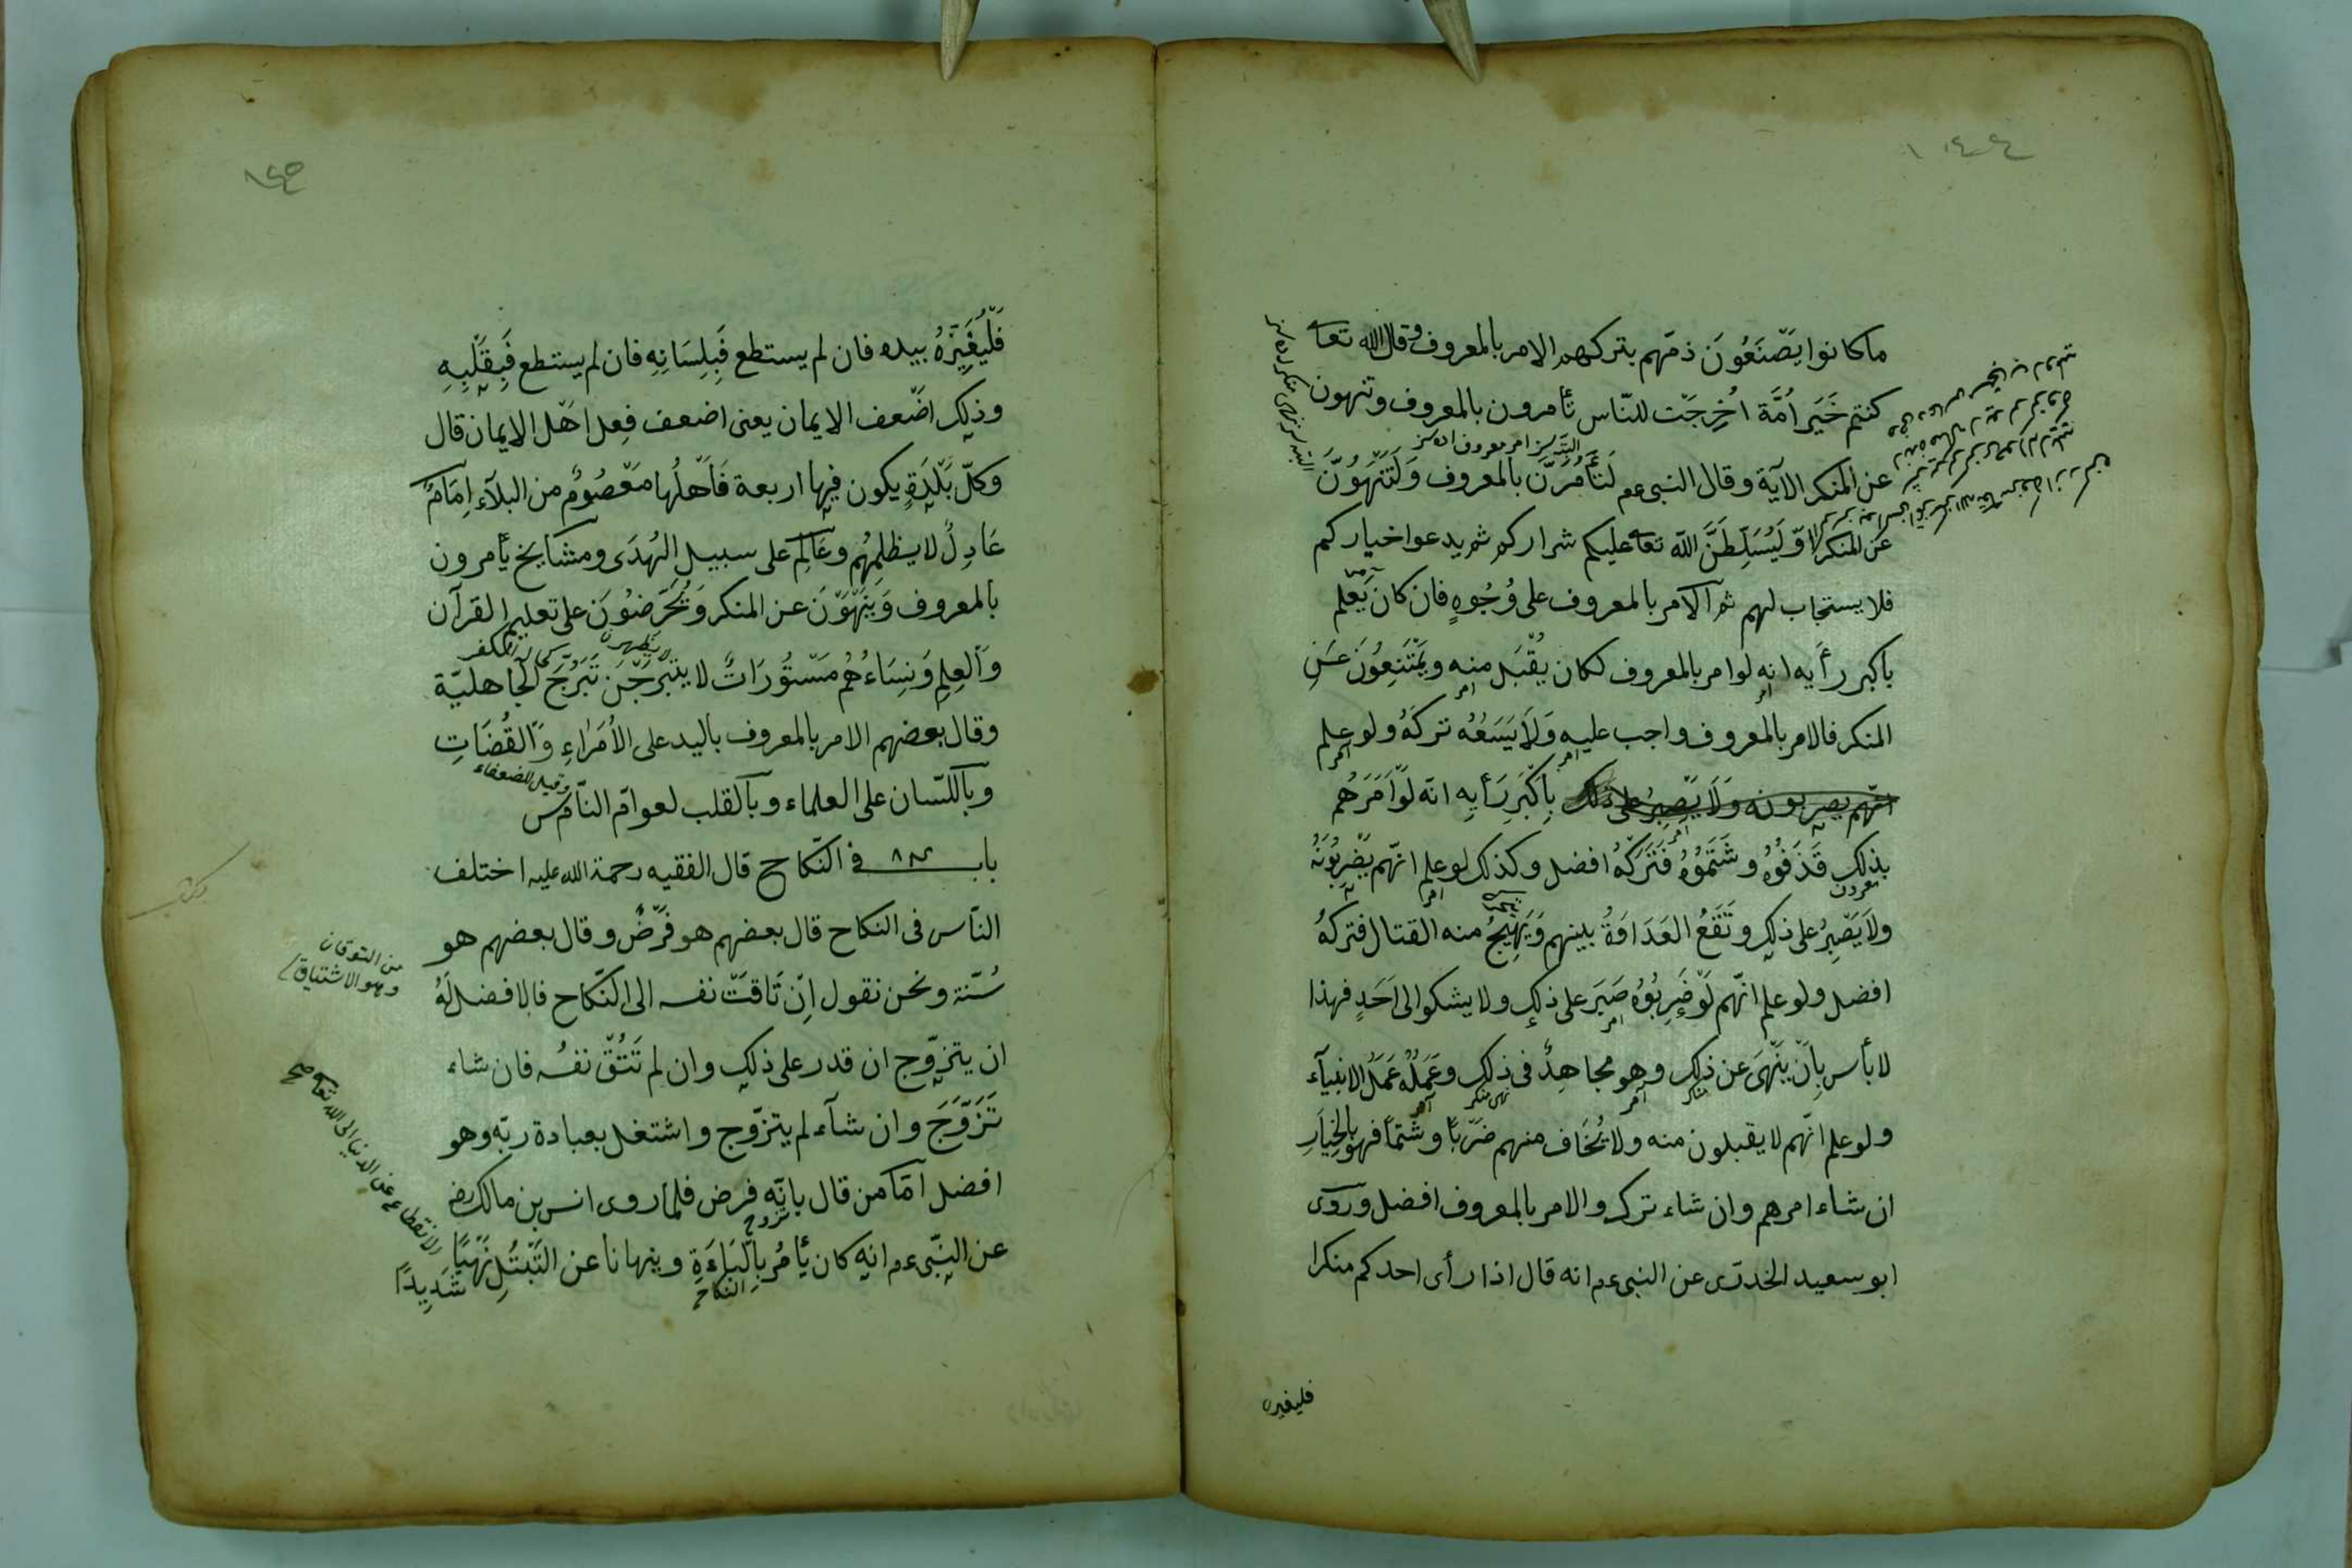 ١٤٤
ما كانوا يَصْنَعُونَ ذمّهم بتركهم الامر بالمعروف وقال الله تعا
كنتم خَيْرَ اُمَّة اُخْرِجَتْ للنّاس تأمرون بالمعروف وتنهون
عن المنكر الآية وقال النبى عم لَتَأْمُرُنَّ بالمَعْروف وَلَتَنْهَوُنَّ
عَن المنكر اوْ لَيُسَلِّطَنَّ اللّه تعا عليكم شراركم ثم يدعوا خياركم
فلا يستجاب لهم ثم الامر بالمعروف على وُجُوهٍ فان كان يَعْلم
باكبر رأيه انه لو امر بالمعروف لكان يُقْبَل منه ويَمْتَنِعُونَ عَنِ
المنكر فالامر بالمعروف واجب عليه وَلَا يَسَعُهُ تركَهُ ولو علم
بِاَكْبَرِ رَأيِه انّه لَوْ اَمَرَهُم
بذلك قَذَفُوهُ وشَتَمُوُهُ فَتَرْكُهُ افضل وكذلك لو علم انّهم يَضْرِبُونَهُ
ولَا يَصْبِرُ على ذلك وتَقَعُ العَدَاوَةُ بينهم وَيَهِيجُ منه القتال فتركهُ
افضل ولو علم انّهم لَوْ ضَرَبُوُهُ صَبَرَ على ذلك ولا يشكوا الى اَحَدٍ فهذا
لا بأس بِاَنْ يَنْهَىَ عن ذلك وهو مجاهِدٌ فى ذلك وعَمَلُهُ عَمَلُ الانبيآء
ولو علم انّهم لا يقبلون منه ولا يُخَاف منهم ضَرْباً وشَتْماً فهو بالخِيَارِ
ان شاء امرهم وان شاء ترك والامر بالمعروف افضل وروى
ابو سعيد الخدرى عن النبى عم انه قال اذا رأى احدكم منكرا
فليغيره
١٤٥
فَلْيُغَيِّرْهُ بيده فان لم يستطع فَبِلِسَانِهِ فان لم يستطع فَبِقَلْبِهِ
وذلك اضْعف الايمان يعنى اضعف فِعل اهْل الايمان قال
وكلّ بَلْدَةٍ يكون فيها اربعة فَاَهْلُهَا مَعْصُومٌ من البلآء اِمَامٌ
عَادِلٌ لا يظلمُهُم وعَالِم على سبيل الهُدَى ومشايخ يأمرون
بالمعروف وَيَنْهَوْنَ عن المنكر وَيُحَرِّضُونَ على تعليم القرآن
وَالعِلم وَنِسَاءُهُم مَسْتُورَاتٌ لا يتبرّجْنَ تَبَرُّجَ الجاهليّة
وقال بعضهم الامر بالمعروف باليد على الاُمَرَاءِ وَالقُضَاتِ
وقيل للضعفاء
وباللّسان على العلماء وبالقلب لعوامّ النّاس
باب ٨٢ فى النّكاح قال الفقيه رحمة الله عليه اختلف
النّاس فى النكاح قال بعضهم هو فَرْضٌ وقال بعضهم هو
من التوقان
وهو الاشتياق
سُنّة ونحن نقول اِنْ تَاقَتْ نفسه الى النّكاح فالافضل لَهُ
ان يتزوّج ان قدر على ذلك وان لم تَتُقْ نفسُه فان شاء
تَزَوَّجَ وان شآء لم يتزوّج واشتغل بعبادة ربّه وهو
افضل امّا من قال بانّه فرض فلما روى انس بن مالك رض
عن النّبى عم انه كان يأمُر بِالْبَاءَةِ وينهانا عن التَّبَتُّلِ نَهْيًا
شَدِيداً
النكاح
الانقطاع عن الدنيا الى الله تعا صح